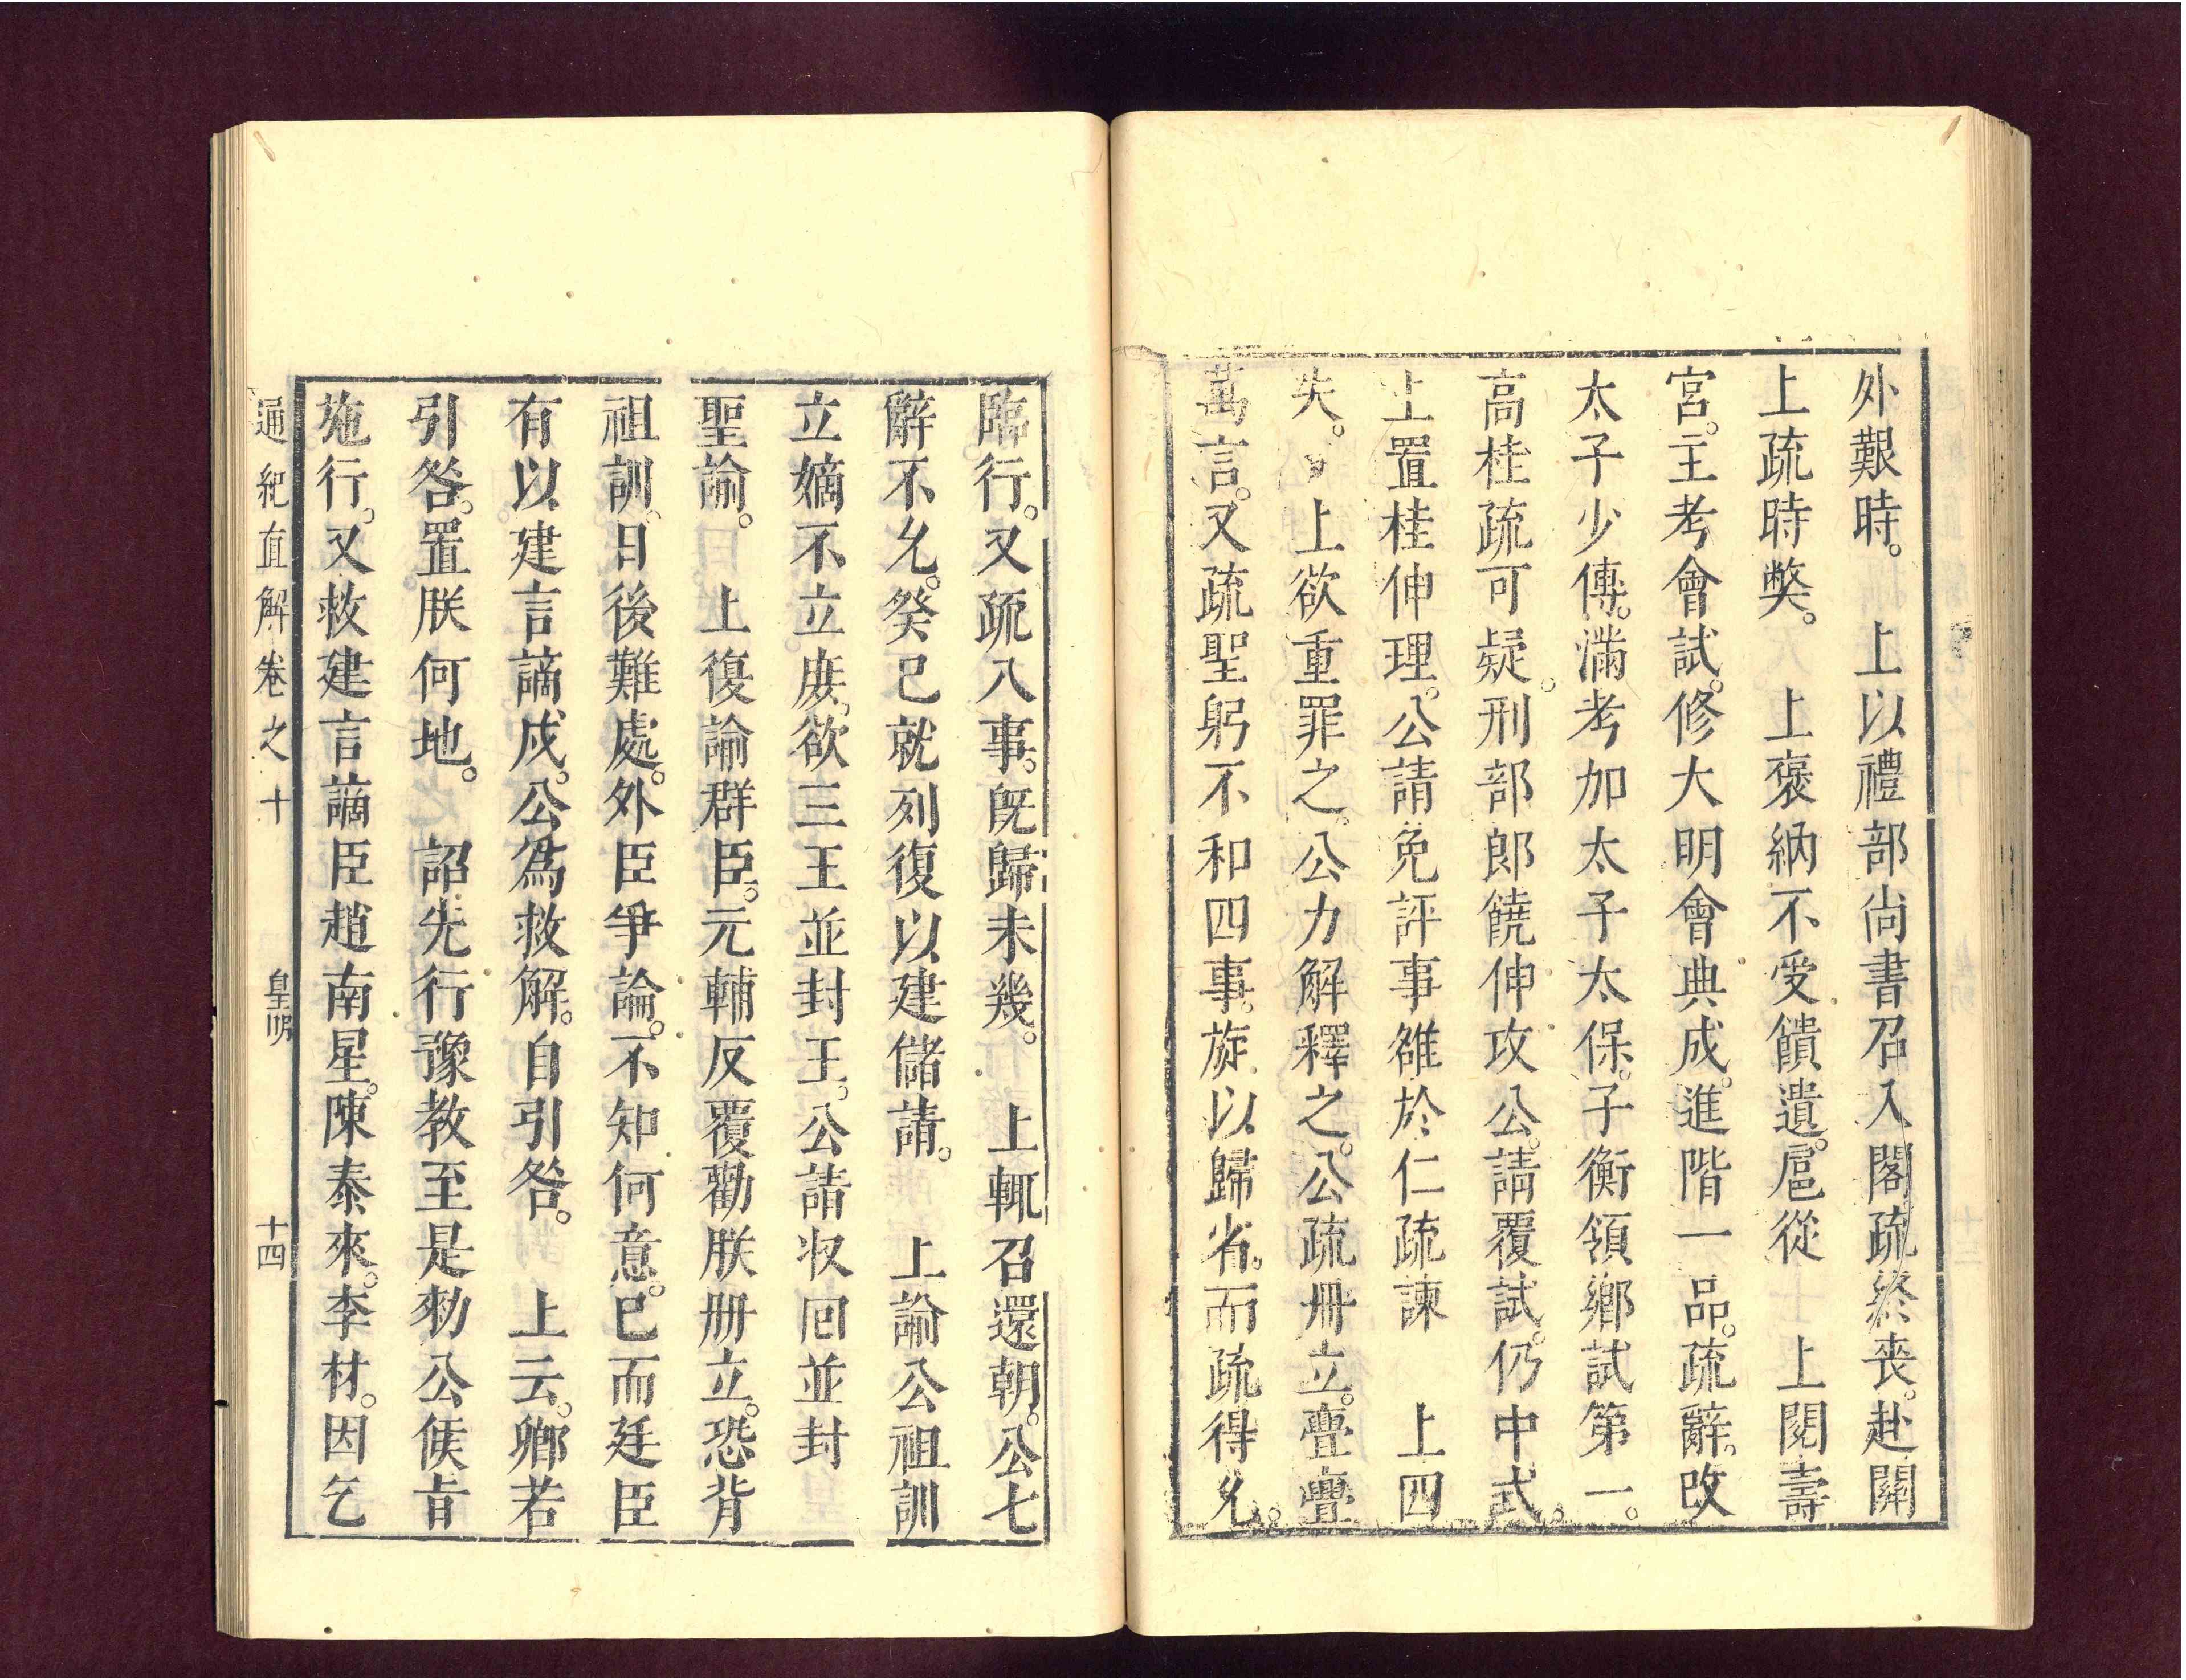 外艱時。　上以禮部尙書召入閣疏終喪。赴闕
上疏時獘。　上褒納不受饋遺。扈從　上閱壽
宮。主考會試。修大明會典成。進階一品。疏辭。改
太子少傅。滿考加太子太保。子衡領鄉試第一。
高桂疏可疑。刑部郎饒伸攻公。請覆試。仍中式。
上置桂伸理。公請免評事雒於仁疏諫　上四
失。　上欲重罪之。公力解釋之。公疏冊立。亹亹
萬言。又疏聖躬不和四事。旋以歸省。而疏得允。
臨行。又疏八事。旣歸未幾。　上輒召還朝。公七
辭不允。癸巳就列。復以建儲請。　上諭公祖訓
立嫡不立庶。欲三王並封王。公請收回並封
聖諭。　上復諭群臣。元輔反覆勸朕册立。恐背
祖訓。日後難處。外臣爭論。不知何意。已而廷臣
有以建言謫戍。公爲救解。自引咎。　上云。卿若
引咎。置朕何地。　詔先行豫教至是勑公候旨
施行。又救建言謫臣趙南星。陳泰來。李材。因乞
通紀直解卷之十　皇明　十四